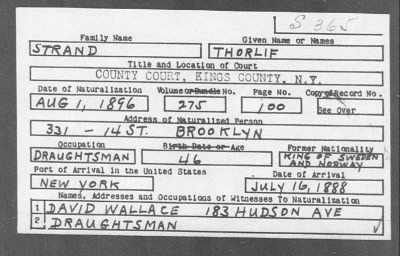 S 365
Family Name Given Name or Names
STRAND THORLIF
Title and Location of Court
COUNTY COURT, KINGS COUNTY, N.Y.
Date of Naturalization Volume or Bundle No. Page No. Copy of Record No.
AUG 1, 1896 275 100 See Over
Address of Naturalized Person
331 - 14 ST. BROOKLYN
Occupation Birth Date or Age Former Nationality
DRAUGHTSMAN 46 KING OF SWEDEN AND NORWAY
Port of Arrival in the United States Date of Arrival
NEW YORK JULY 16, 1888
Names, Addresses and Occupations of Witnesses To Naturalization
1 DAVID WALLACE 183 HUDSON AVE
2 DRAUGHTSMAN